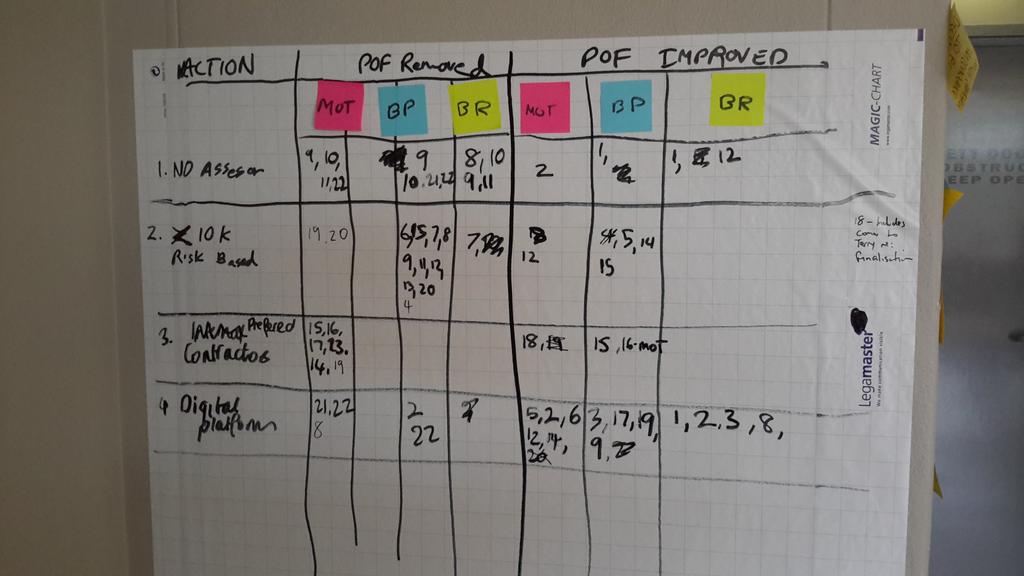 ACTION POF Removed POF IMPROVED
MOT BP BR MOT BP BR
1. NO Assesor 9, 10, 9 8, 10 2 1, 1, 12
11,22 10, 21,22 9, 11
2. 10k 19, 20 7,8 7, 5, 14
Risk Based 9, 11, 12 15
13, 20
4
3. Prefered 15,16, 18, 15, 16-MOT
Contractos 17,23,
14, 19
4 Digital 21,22 2 5, 2, 6 3, 17, 19, 1, 2, 3, 8,
platform 8 22 12, 14, 9,
18 - includes
Terry
finalisation
MAGIC-CHART
Legamaster
OBSTRUC
KEEP OPE